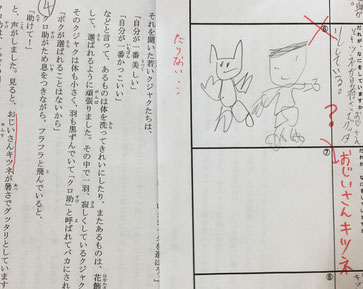 ⑥
？
おじいさんキツネ
⑦
⑧
たりない…
それを聞いた若いクジャクたちは、
「自分が一番美しい」
「自分が一番かっこいい」
などと言って、あるものは体を洗ってきれいにしたり、またあるものは、花飾
して、選ばれるように頑張りました。その中で一羽、寂しくしているクジャク
そのクジャクは体も小さく、羽も黒ずんでいて「クロ助」と呼ばれてバカにされ
「ボクが選ばれることはないから」
クロ助がため息をつきながら、フラフラと飛んでいると、
助けて！」
④
と、声がしました。見ると、おじいさんキツネが暑さでグッタリとしています